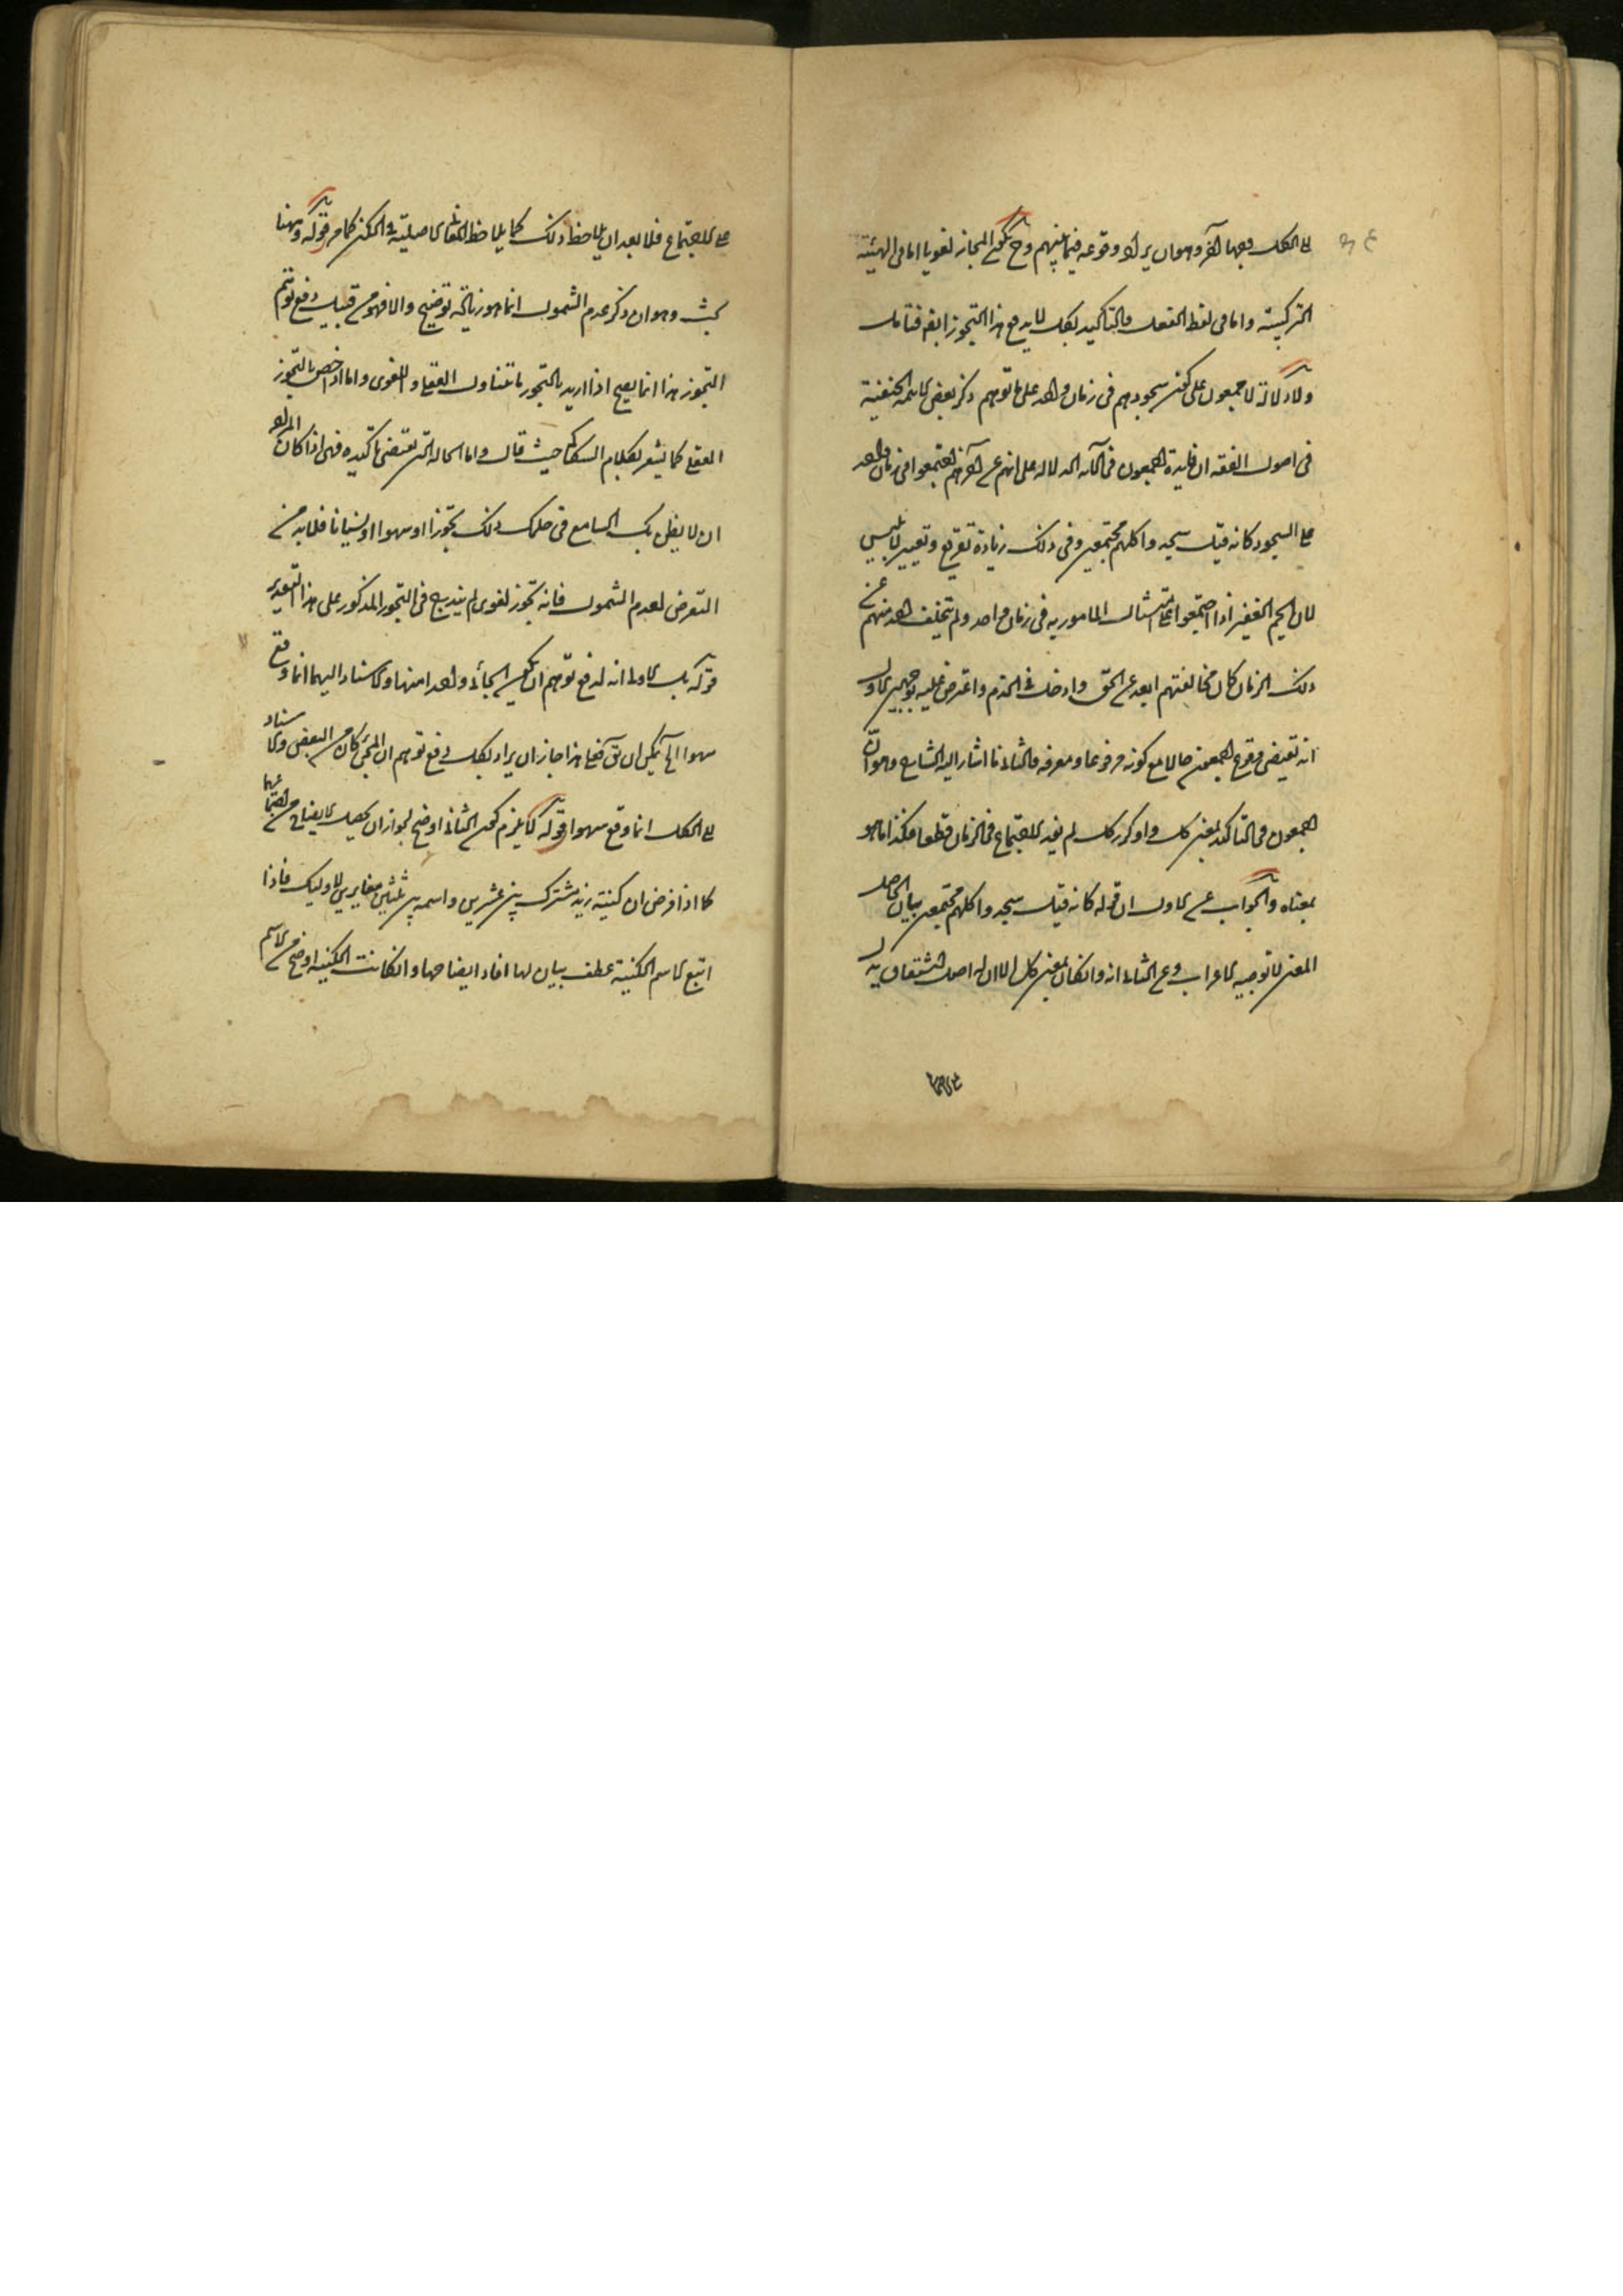 الى الكل وجها آخر وهو ان يراد وقوعه فيما بينهم وح يكون المجاز لغويا اما فى الهيئة
التركيبية واما فى لفظ الفعل فالتاكيد بكل لا يدفع هذا التجوز ايضا فتامل
ولا دلالة لاجمعون على كون سجودهم فى زمان واحد على ما توهم ذكر بعض الائمة الحنفية
فى اصول الفقه ان فايدة اجمعون فى الآية الدلالة على انهم عن آخرهم اجتمعوا فى زمان واحد
على السجود كانه قيل سجدوا كلهم مجتمعين وفى ذلك زيادة تقريع وتعيير لابليس
لان الجم الغفير اذا اجتمعوا على امتثال المامور به فى زمان واحد ولم يتخلف احد منهم عن
ذلك الزمان كان مخالفتهم ابعد عن الحق وادخل فى الذم واعترض عليه بوجهين الاول
انه يقتضى وقوع اجمعين حالا مع كونه مرفوعا ومعرفة والثانى ما اشار اليه الشارح وهو ان
اجمعون فى التاكيد بمعنى كل ولو كرر كل لم يفد الاجتماع فى الزمان قطعا فكذا ما هو
بمعناه والجواب عن الاول ان قوله كانه قيل سجدوا كلهم مجتمعين بيان لحاصل
المعنى لا توجيه الاعراب وعن الثانى انه وان كان بمعنى كل الا ان له اصل اشتقاق يدل
على الاجتماع فلا بعد ان يلاحظ ذلك كما يلاحظ المعانى الاصلية فى الكنى كما مر قوله وههنا
بحث وهو ان ذكر عدم الشمول انما هو زيادة توضيح والا فهو من قبيل دفع توهم
التجوز هذا انما يصح اذا اريد بالتجوز ما يتناول العقلى واللغوى واما اذا خص بالتجوز
العقلى كما يشعر به كلام السكاكى حيث قال واما الحالة التى تقتضى تاكيده فهى اذا كان المراد
ان لا يظن بك السامع فى حملك ذلك تجوزا او سهوا او نسيانا فلا بد من
التعرض لعدم الشمول فانه تجوز لغوى لم يندرج فى التجوز المذكور على هذا التقدير
قوله بل الاولى انه لدفع توهم ان يكون الجائى واحدا منهما والاسناد اليهما انما وقع
سهوا الخ يمكن ان يق فعلى هذا جاز ان يراد بكل دفع توهم ان المجىء كان من البعض والاسناد
الى الكل انما وقع سهوا قوله لا يلزم كون الثانى اوضح لجواز ان يحصل الايضاح من اجتماعهما
كما اذا فرض ان كنية زيد مشترك بين عشرين واسمه بين ثلثين مغايرين لاوليك فاذا
اتبع الاسم الكنية عطف بيان لها افاد ايضاحها وان كانت الكنية اوضح من الاسم